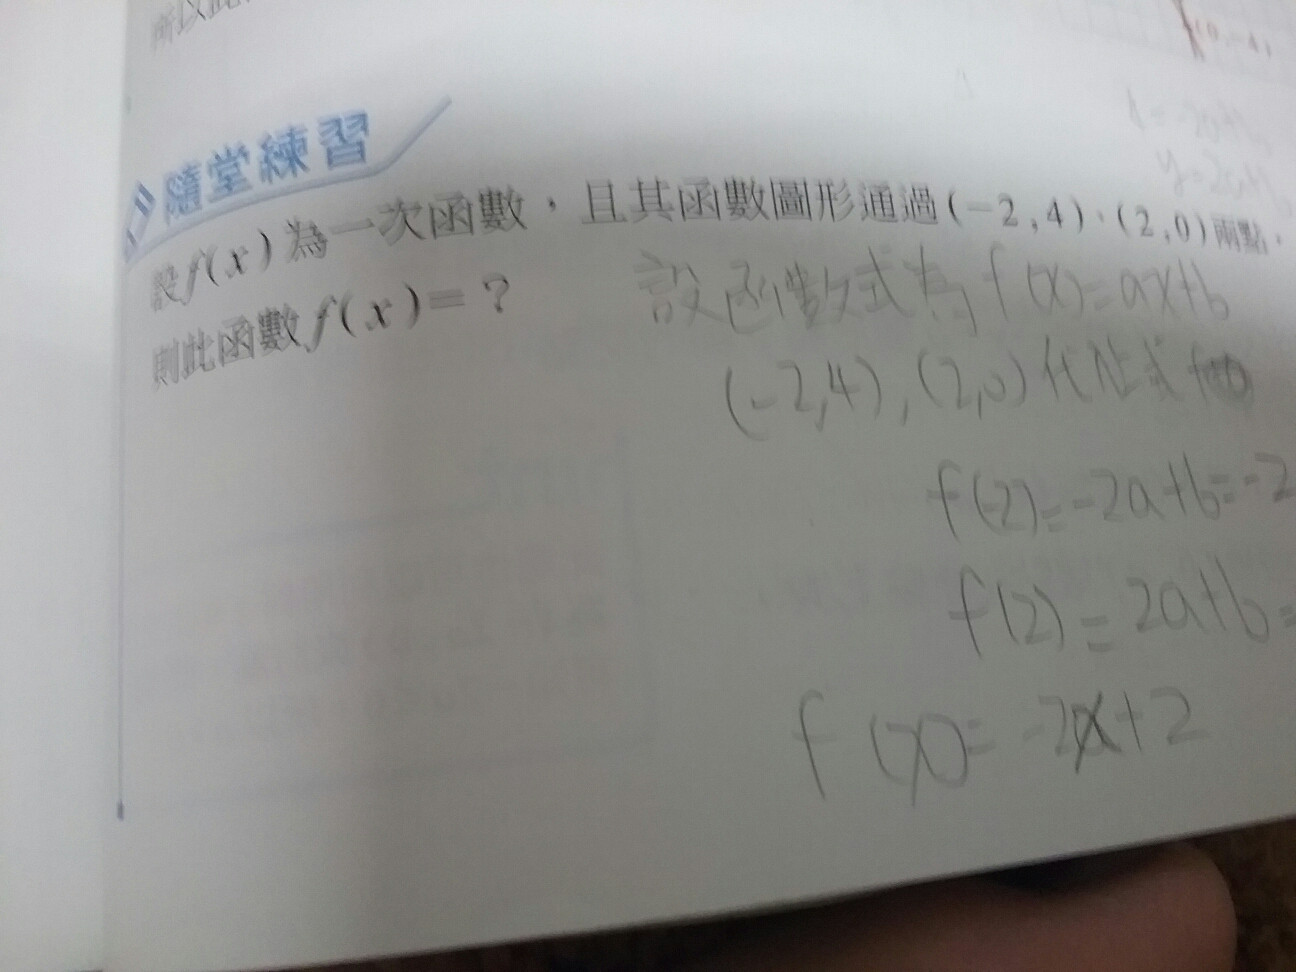 (0,-4)
隨堂練習
設f(x)為一次函數，且其函數圖形通過(-2,4)、(2,0)兩點，
則此函數f(x)=？
設函數式為f(x)=ax+b
(-2,4),(2,0)代
f(-2)=-2a+b=-2
f(2)=2a+b=
f(x)=-2x+2